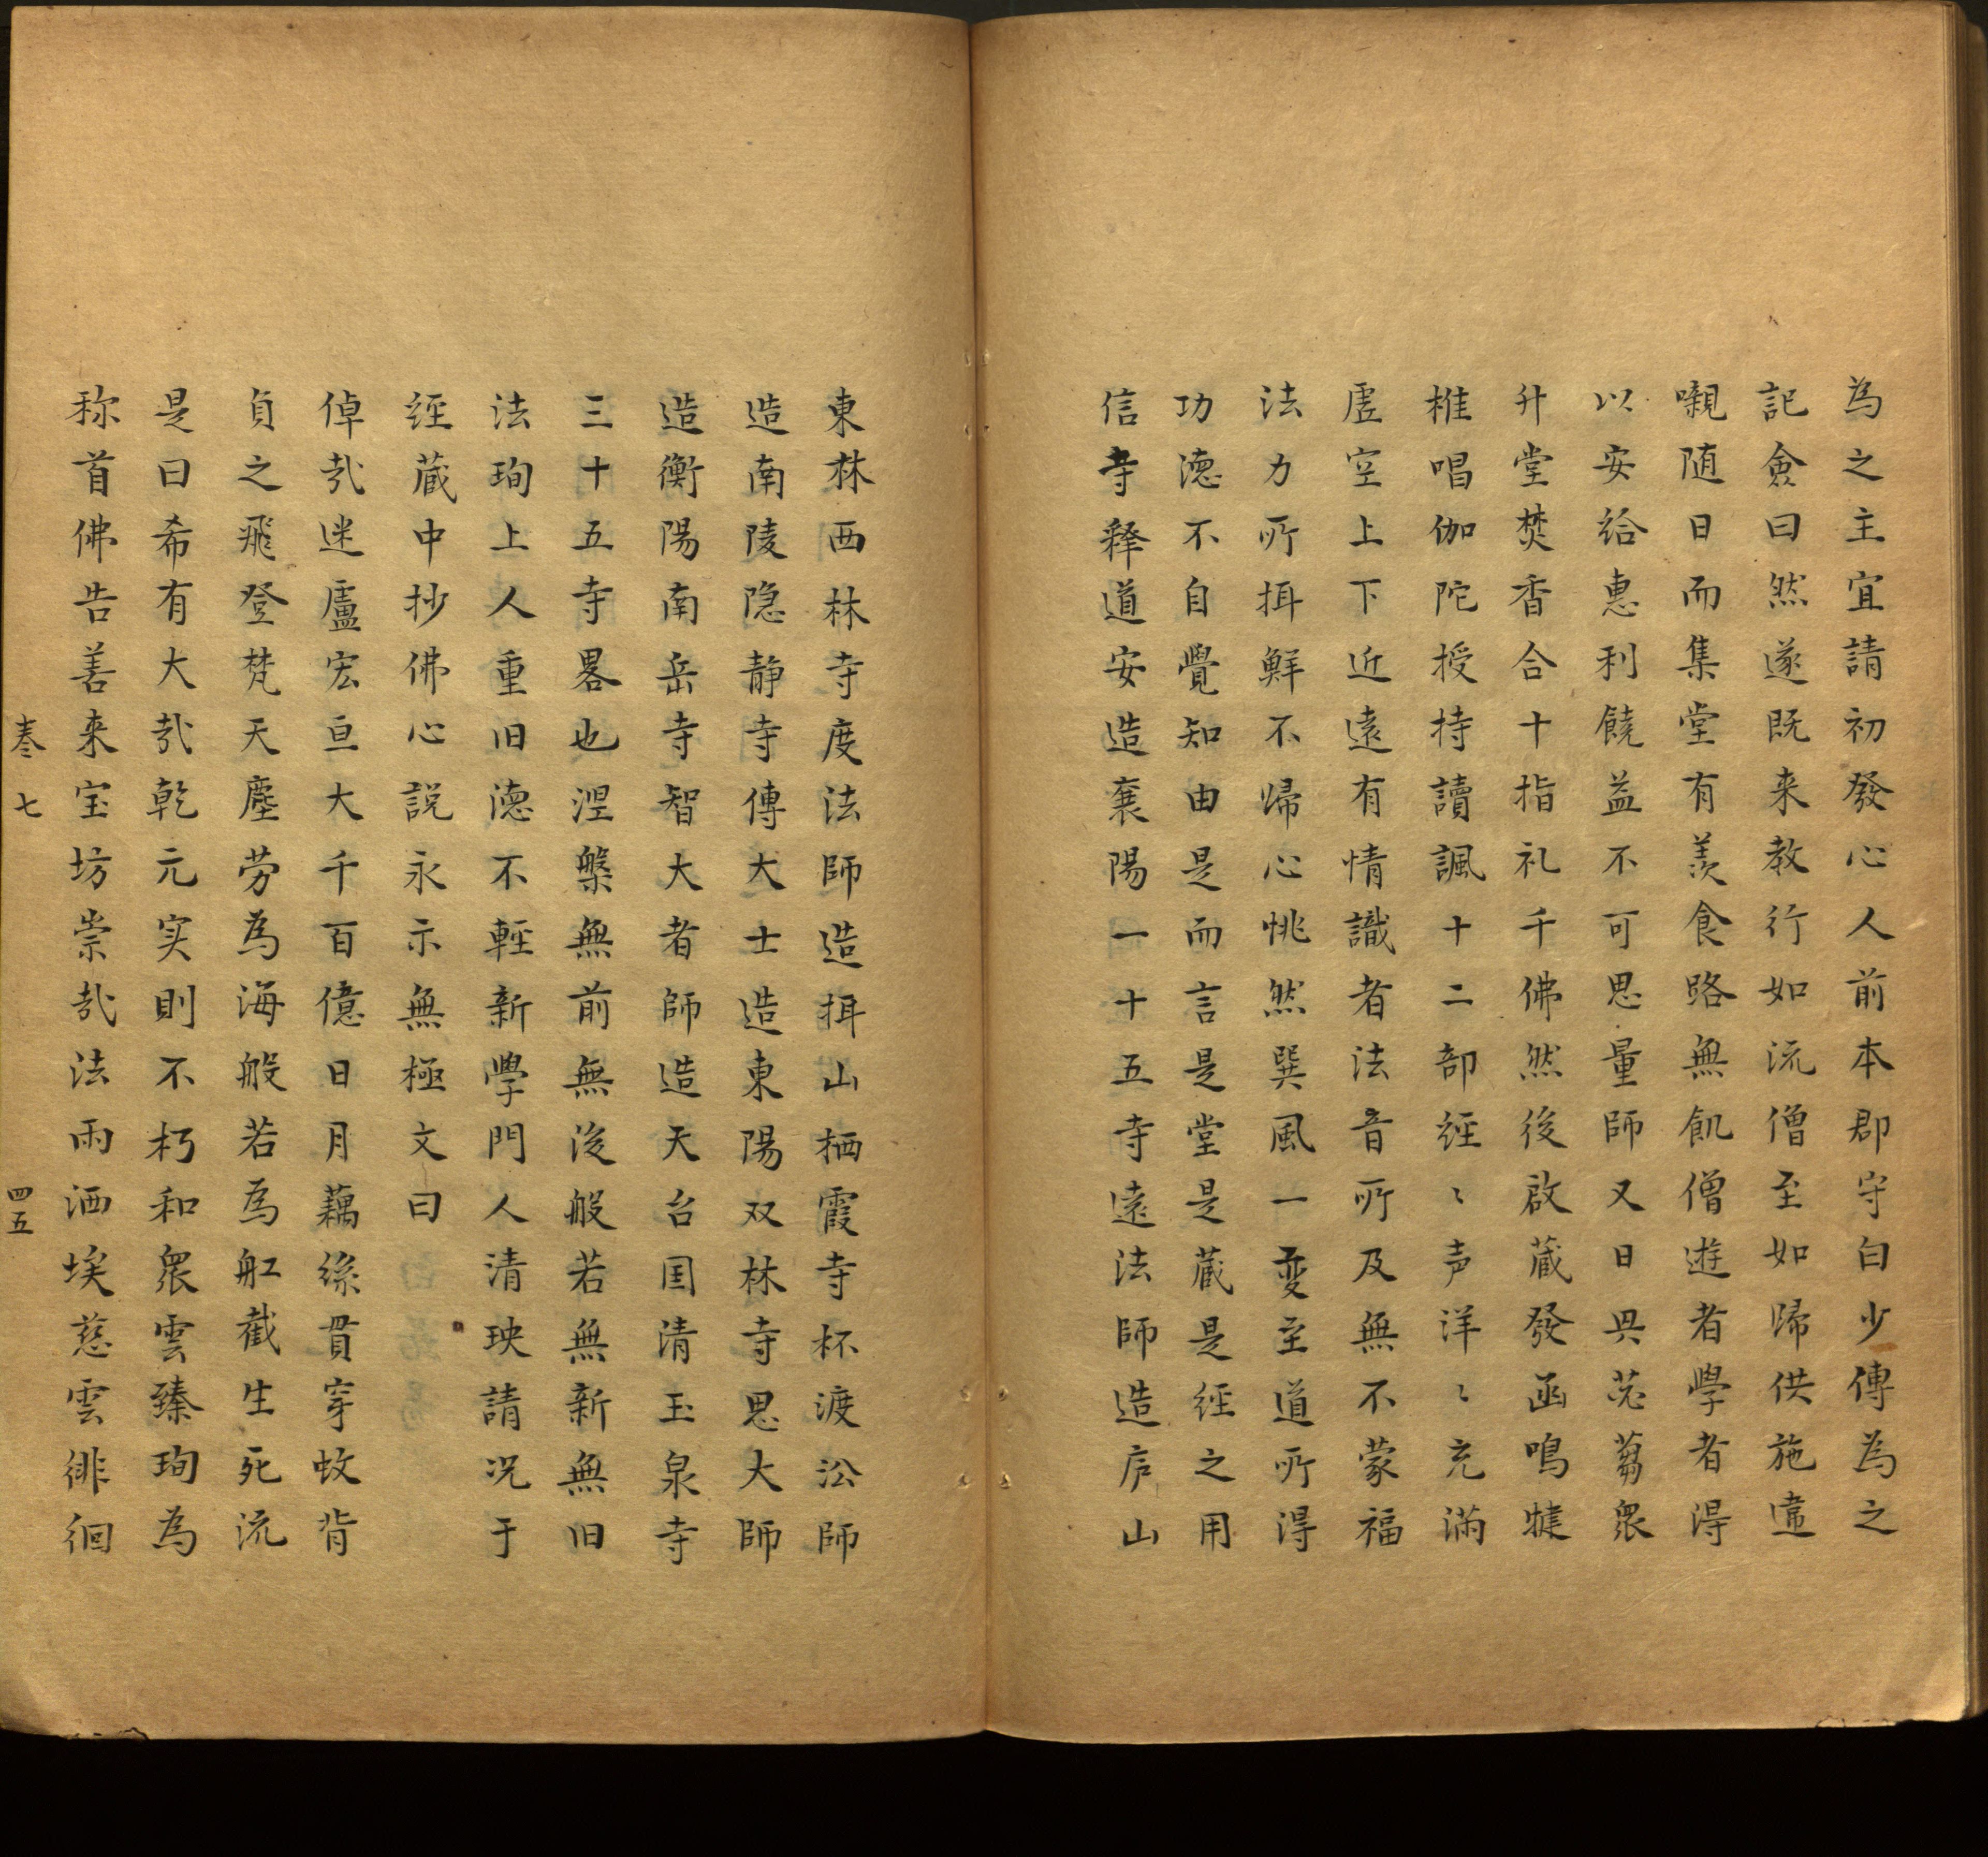 為之主宜請初發心人前本郡守白少傳為之
記僉曰然遂既来教行如流僧至如歸供施達
嚫随日而集堂有羡食路無飢僧遊者學者得
以安給惠利饒益不可思量師又日與苾蒭衆
升堂焚香合十指礼千佛然後啟蔵發函鳴犍
椎唱伽陀授持讀諷十二部經〻声洋〻充滿
虛空上下近遠有情識者法音所及無不蒙福
法力所揖鮮不歸心恌然巽風一變至道所得
功德不自覺知由是而言是堂是蔵是經之用
信寺釋道安造襄陽一十五寺遠法師造庐山
東林西林寺度法師造揖山栖霞寺杯渡訟師
造南陵隐静寺傳大士造東陽双林寺思大師
造衡陽南岳寺智大者師造天台国清玉泉寺
三十五寺畧也涅槃無前無後般若無新無旧
法珣上人重旧德不輕新學門人清玦請况于
經蔵中抄佛心説永示無極文曰
倬㢤迷盧宏亘大千百億日月藕絲貫穿蚊背
負之飛登梵天塵劳為海般若為舡截生死流
是曰希有大㢤乾元实則不朽和衆雲臻珣為
稱首佛告善来宝坊崇㢤法雨洒埃慈雲徘徊
卷七 四五